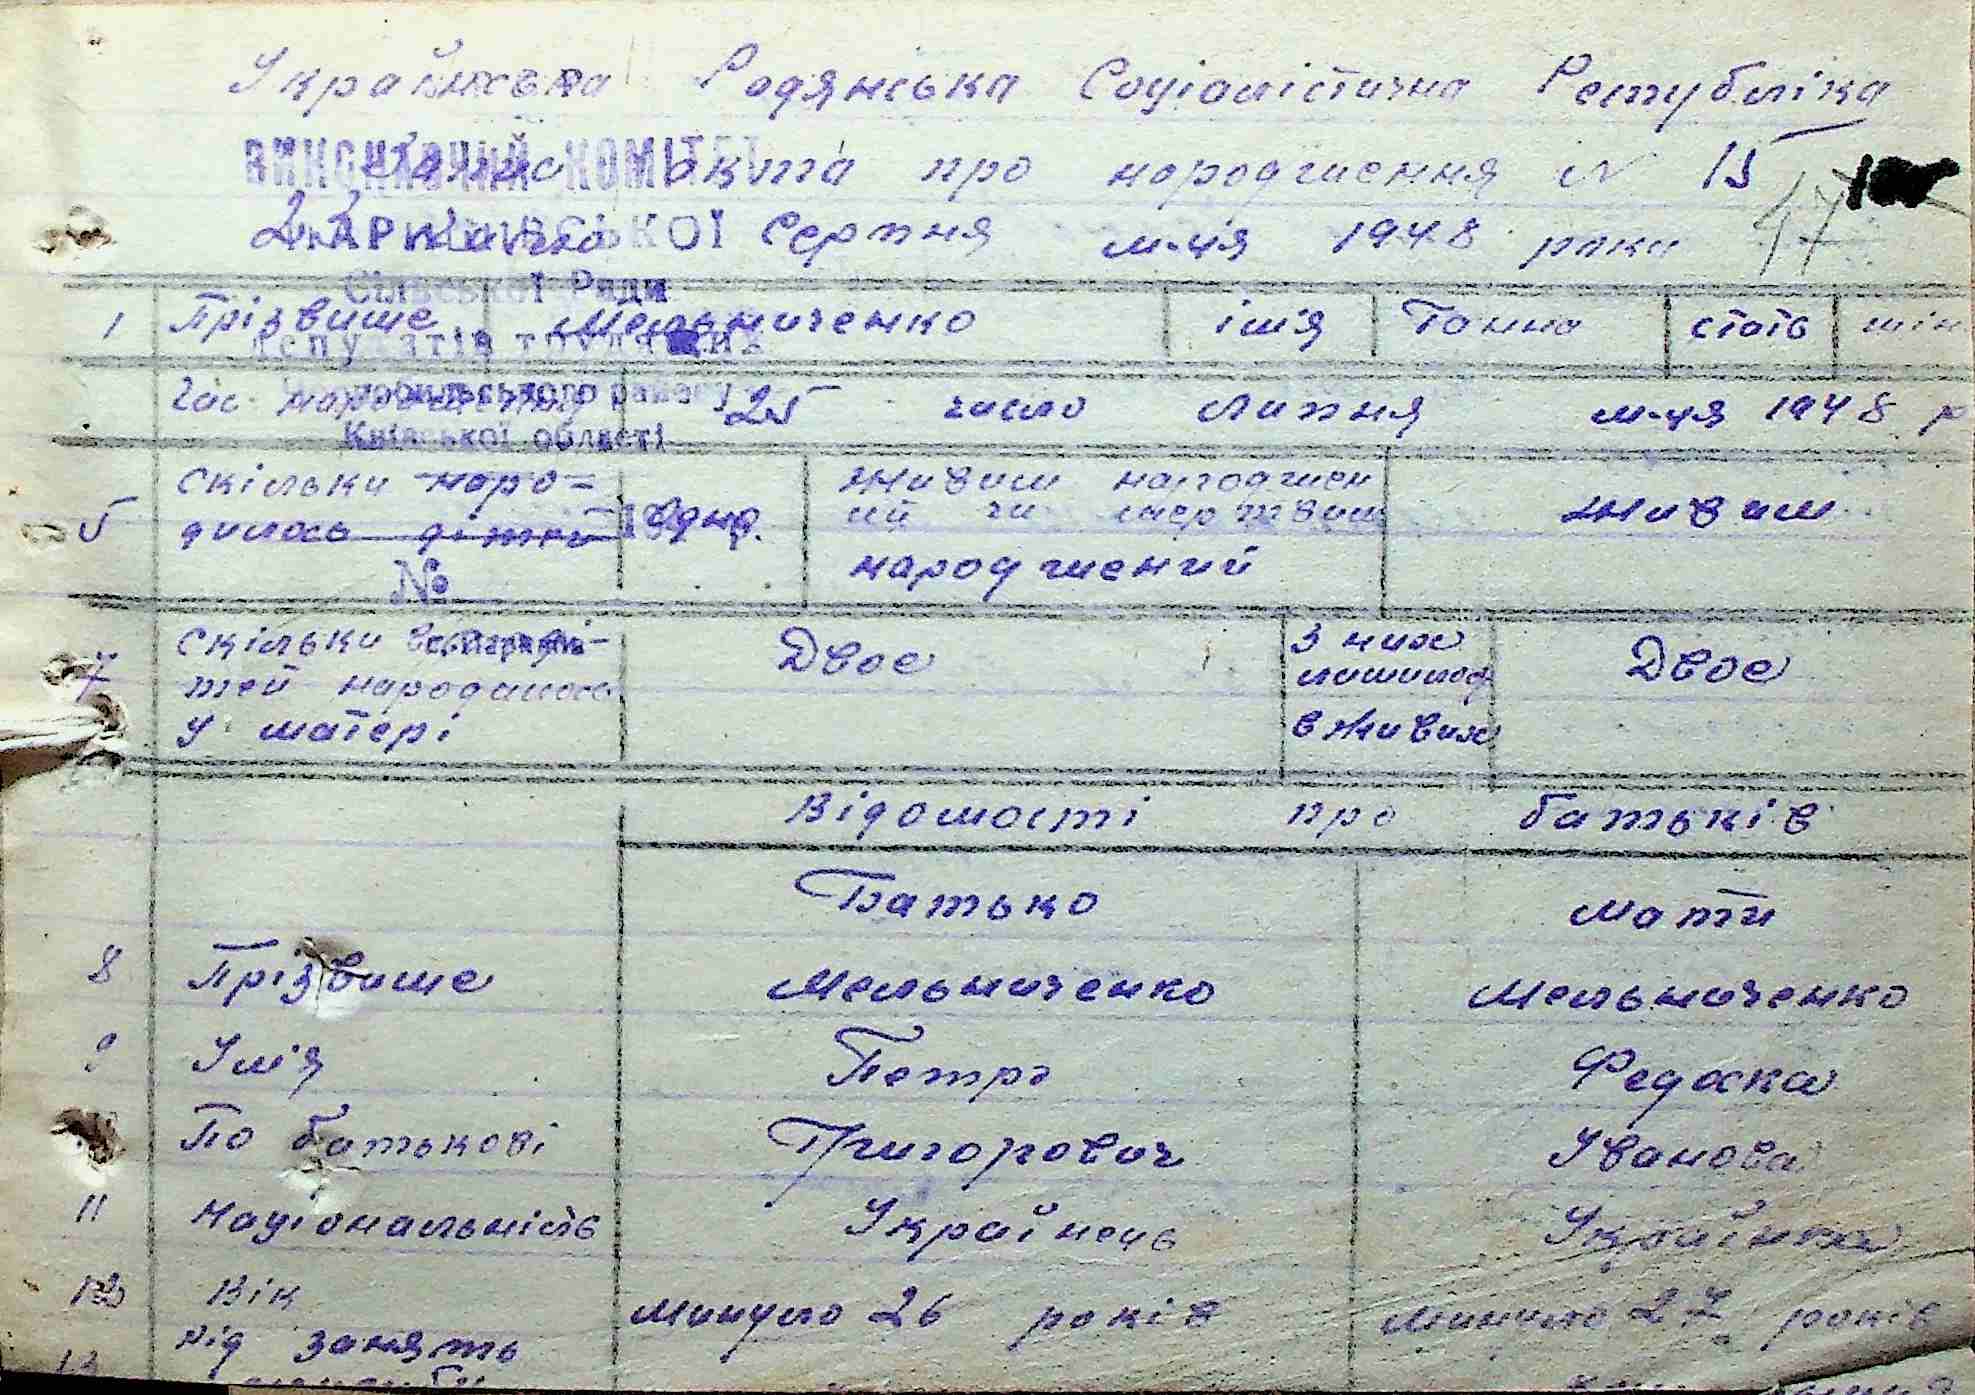 Українська Родянська Соціалістична Республіка
ВИКОНАВЧИЙ КОМІТЕТ
Запис акта про народження N 15
2 числа Серпня м-ця 1948 року
47
Сільської Ради
депутатів трудящих
Чорнобильського району
Київської області
№
1 Прізвише Мельниченко імʼя Ганна стать жін
Час народження 25 число липня м-ця 1948 р
5 скільки наро-
дилось дітей 1 одно.
живим народжен
ий чи мертвим
народжений
живим
7 скільки всього ді-
тей народилось
у матері
Двоє
з них
лишилось
в живих
Двоє
Відомості про батьків
Батько мати
8 Прізвише Мельниченко Мельниченко
9 Імʼя Петро Федоска
По батькові Григорович Іванова
11 Національність Українець Українка
12 Вік минуло 26 років минуло 27 років
рід занять
13